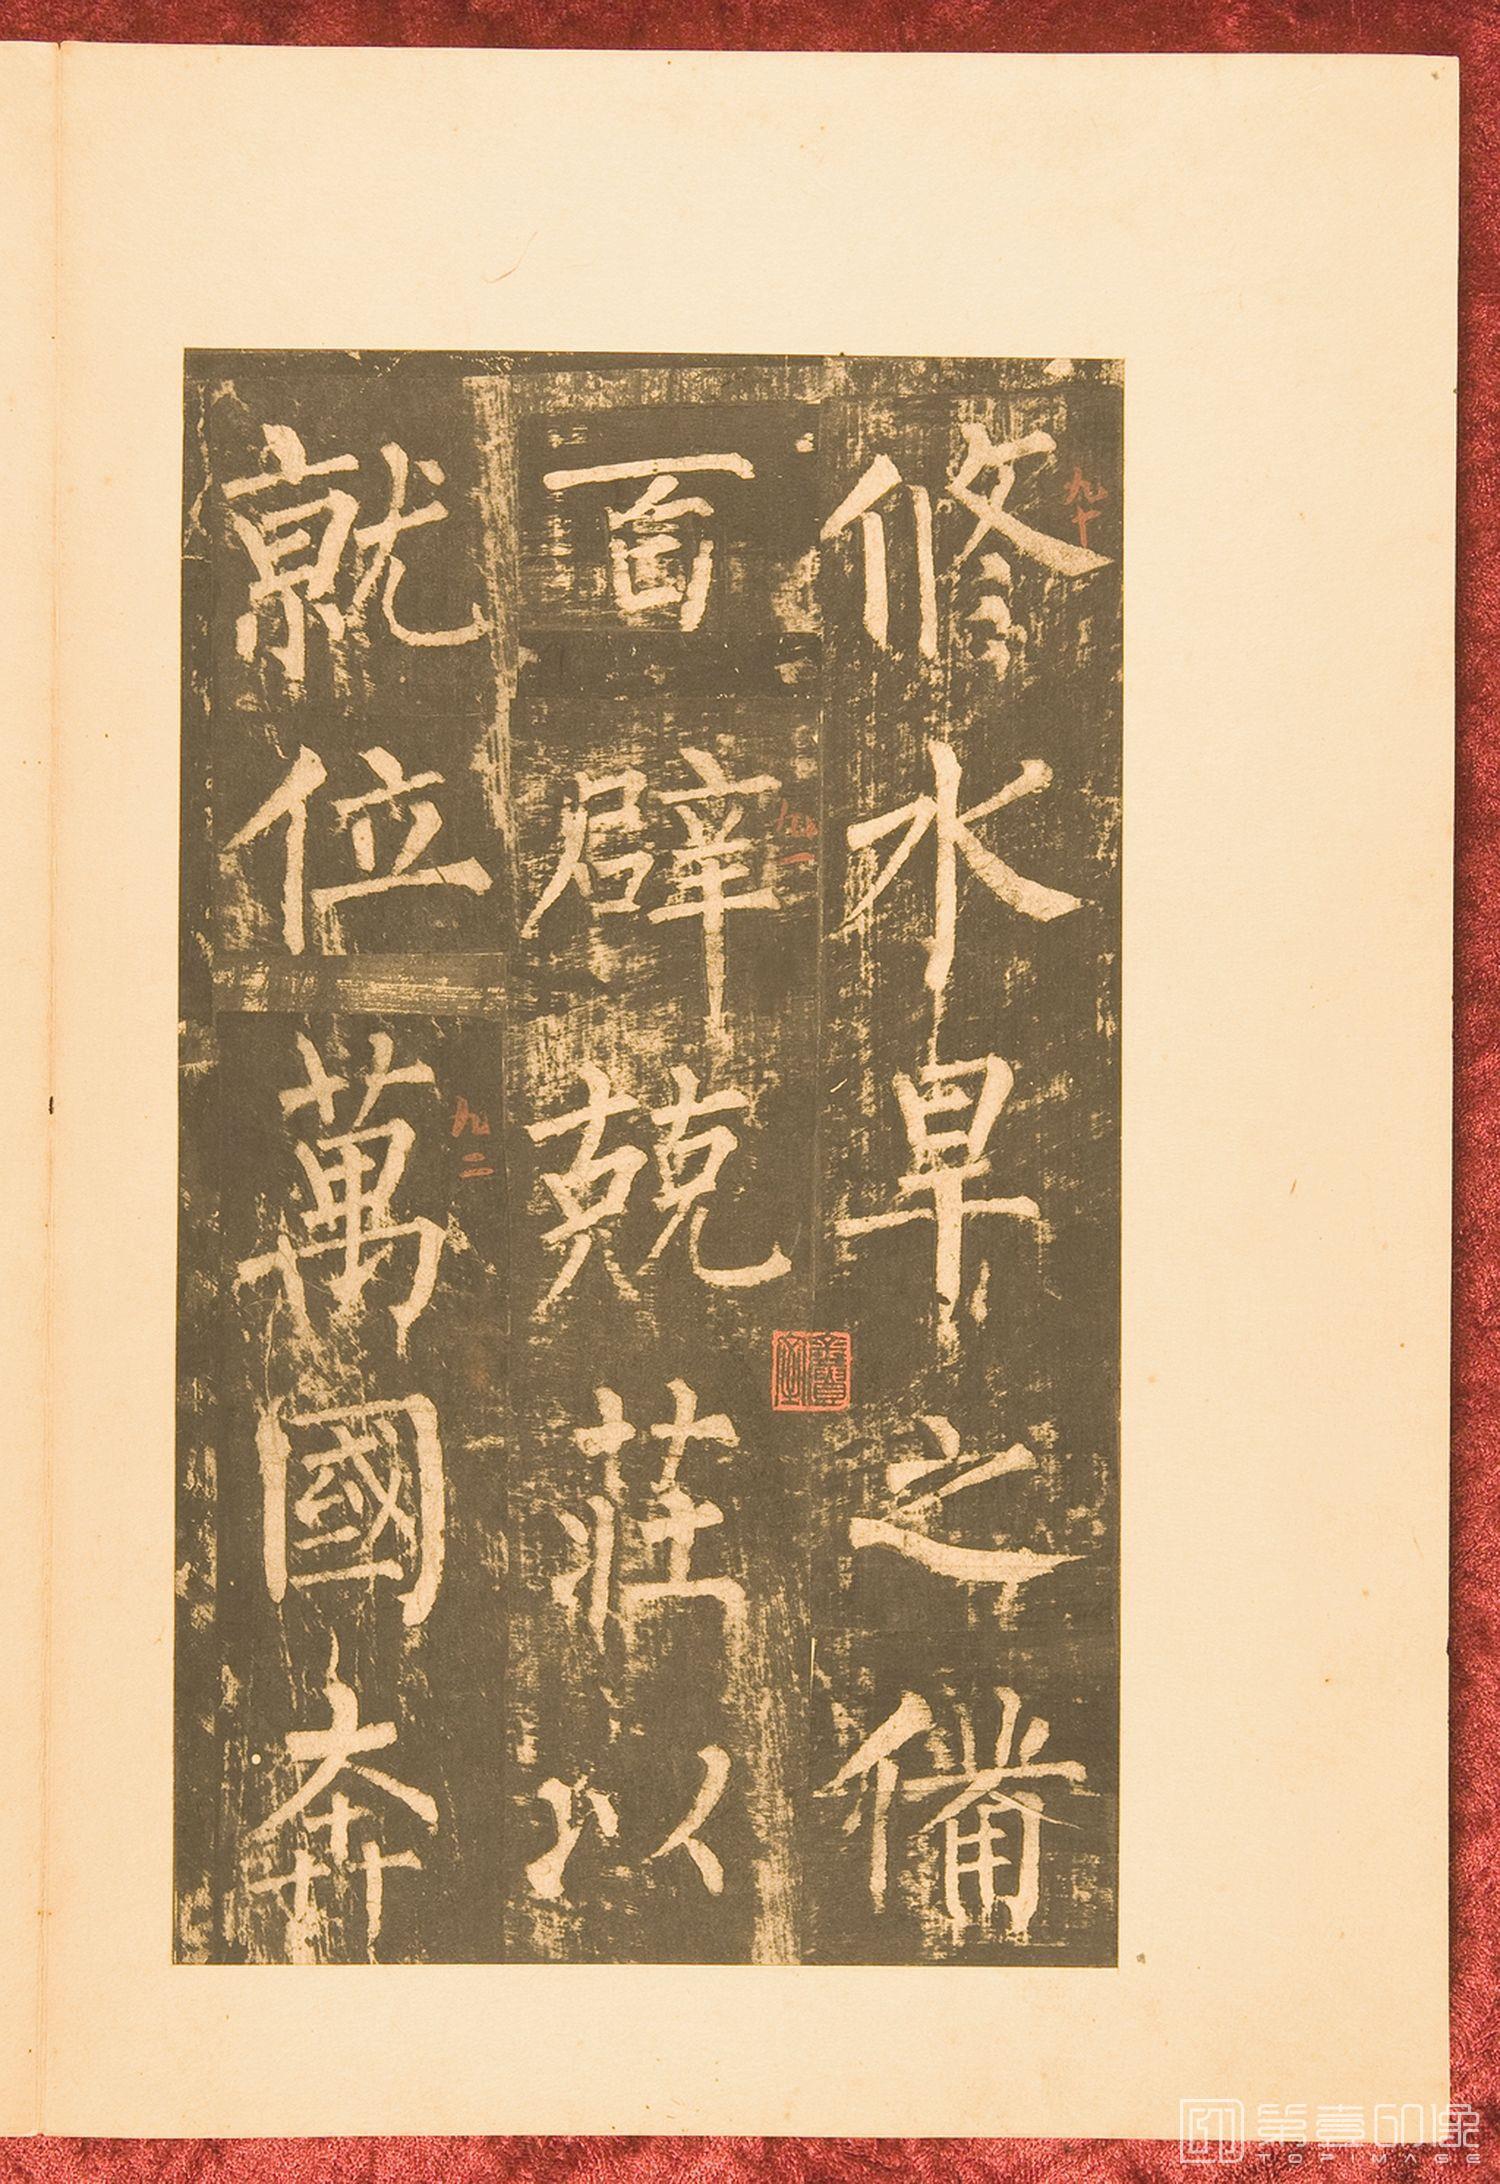 九十
修水旱之備
九一
百辟兢莊以
就位萬國奔
九二
第壹印像
TOPIMAGE